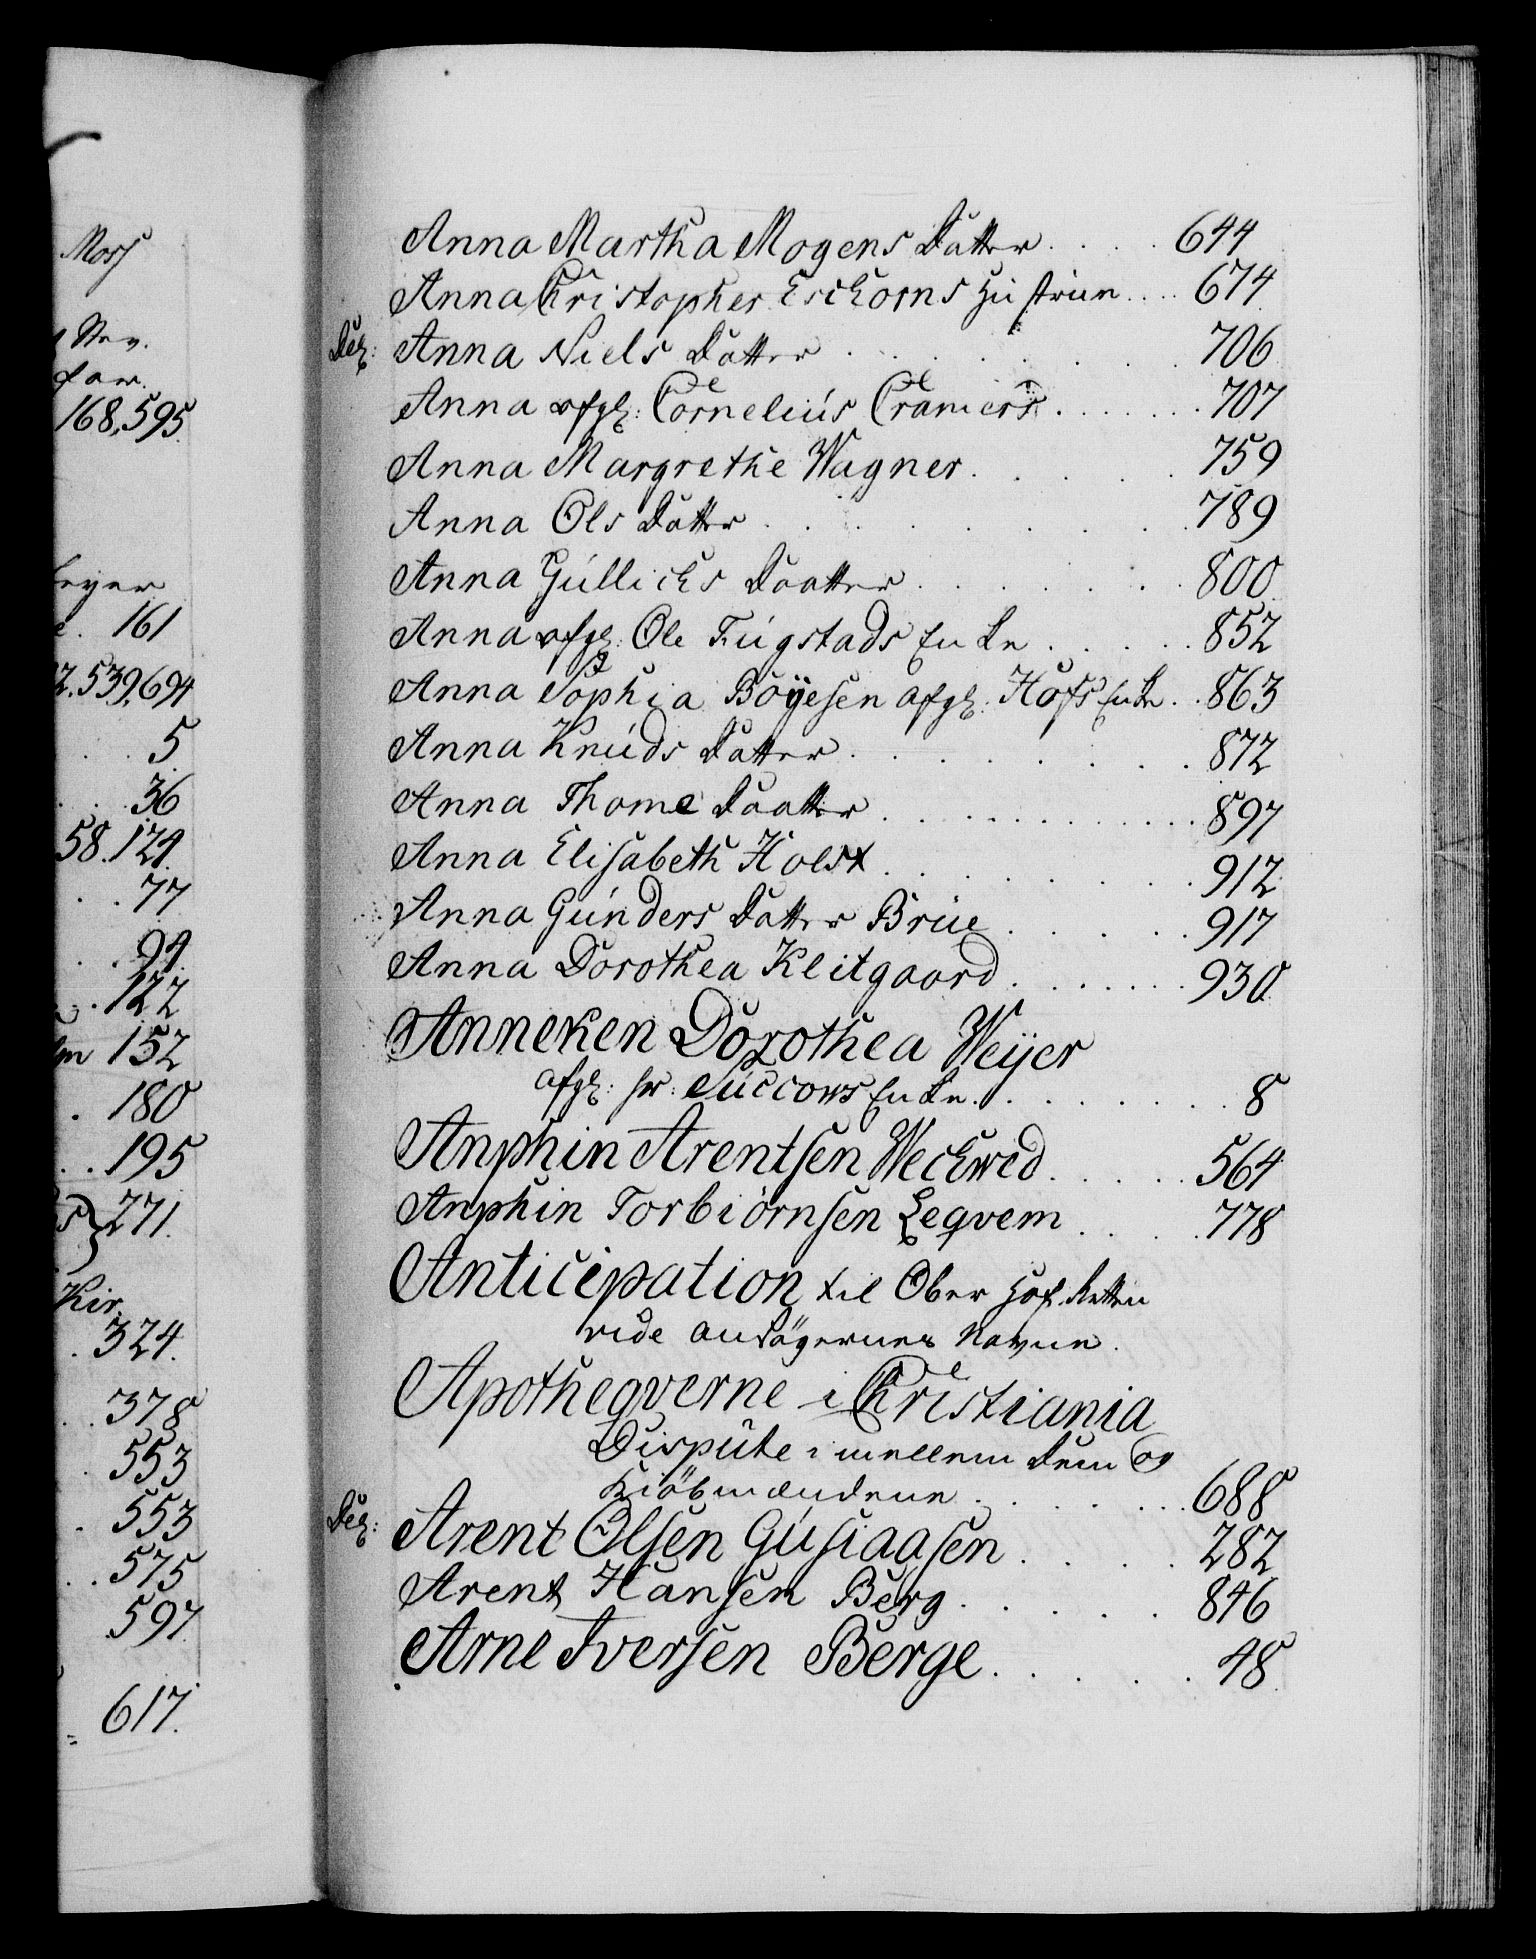 Mors
168,595.
161
2.539,694
5.
36
58.124.
77
94.
122
152
180
195
271.
Kir.
324.
378
553
553
575
597
617.
Anna Martha Mogens Datter . . . . 644
Anna Christopher Eschorns Hustrue . . . . 674
Anna Niels Datter . . . . . . . 706
Anna afgl: Cornelius Cramers . . . . . . . 707
Anna Margrethe Wagner . . . . . 759
Anna Ols Datter . . . . . . . 789
Anna Gullichs Daatter . . . . . . . 800
Anna afgl: Ole Fugstads Enke . . . . . 852
Anna Sophia Böyesen afgl: Hofs Enke . . 863
Anna Knuds Datter . . . . . . . 872
Anna Thome Daatter . . . . . . . . . . 897
Anna Elisabeth Holst . . . . . . . 912
Anna Gunders Datter Brue . . . . . 917
Anna Dorothea Klitgaard . . . . . . . 930
Anneken Dorothea Weyer
afgl: hr: Succows Enke . . . . . . . 8
Anphin Arentsen Wechwed . . . . . 564
Anphin Torbiörnsen Legvem . . . . 778
Anticipation til Ober Hof Retten
vide Ansögernes Navne.
Apotheqverne i Christiania
Dispute imellem dem og
Kiöbmændene . . . . . . 688
Arent Olsen Gusiaasen . . . . . 282
Arent Hansen Berg . . . . . . 846
Arne Iversen Berge . . . . . . 48